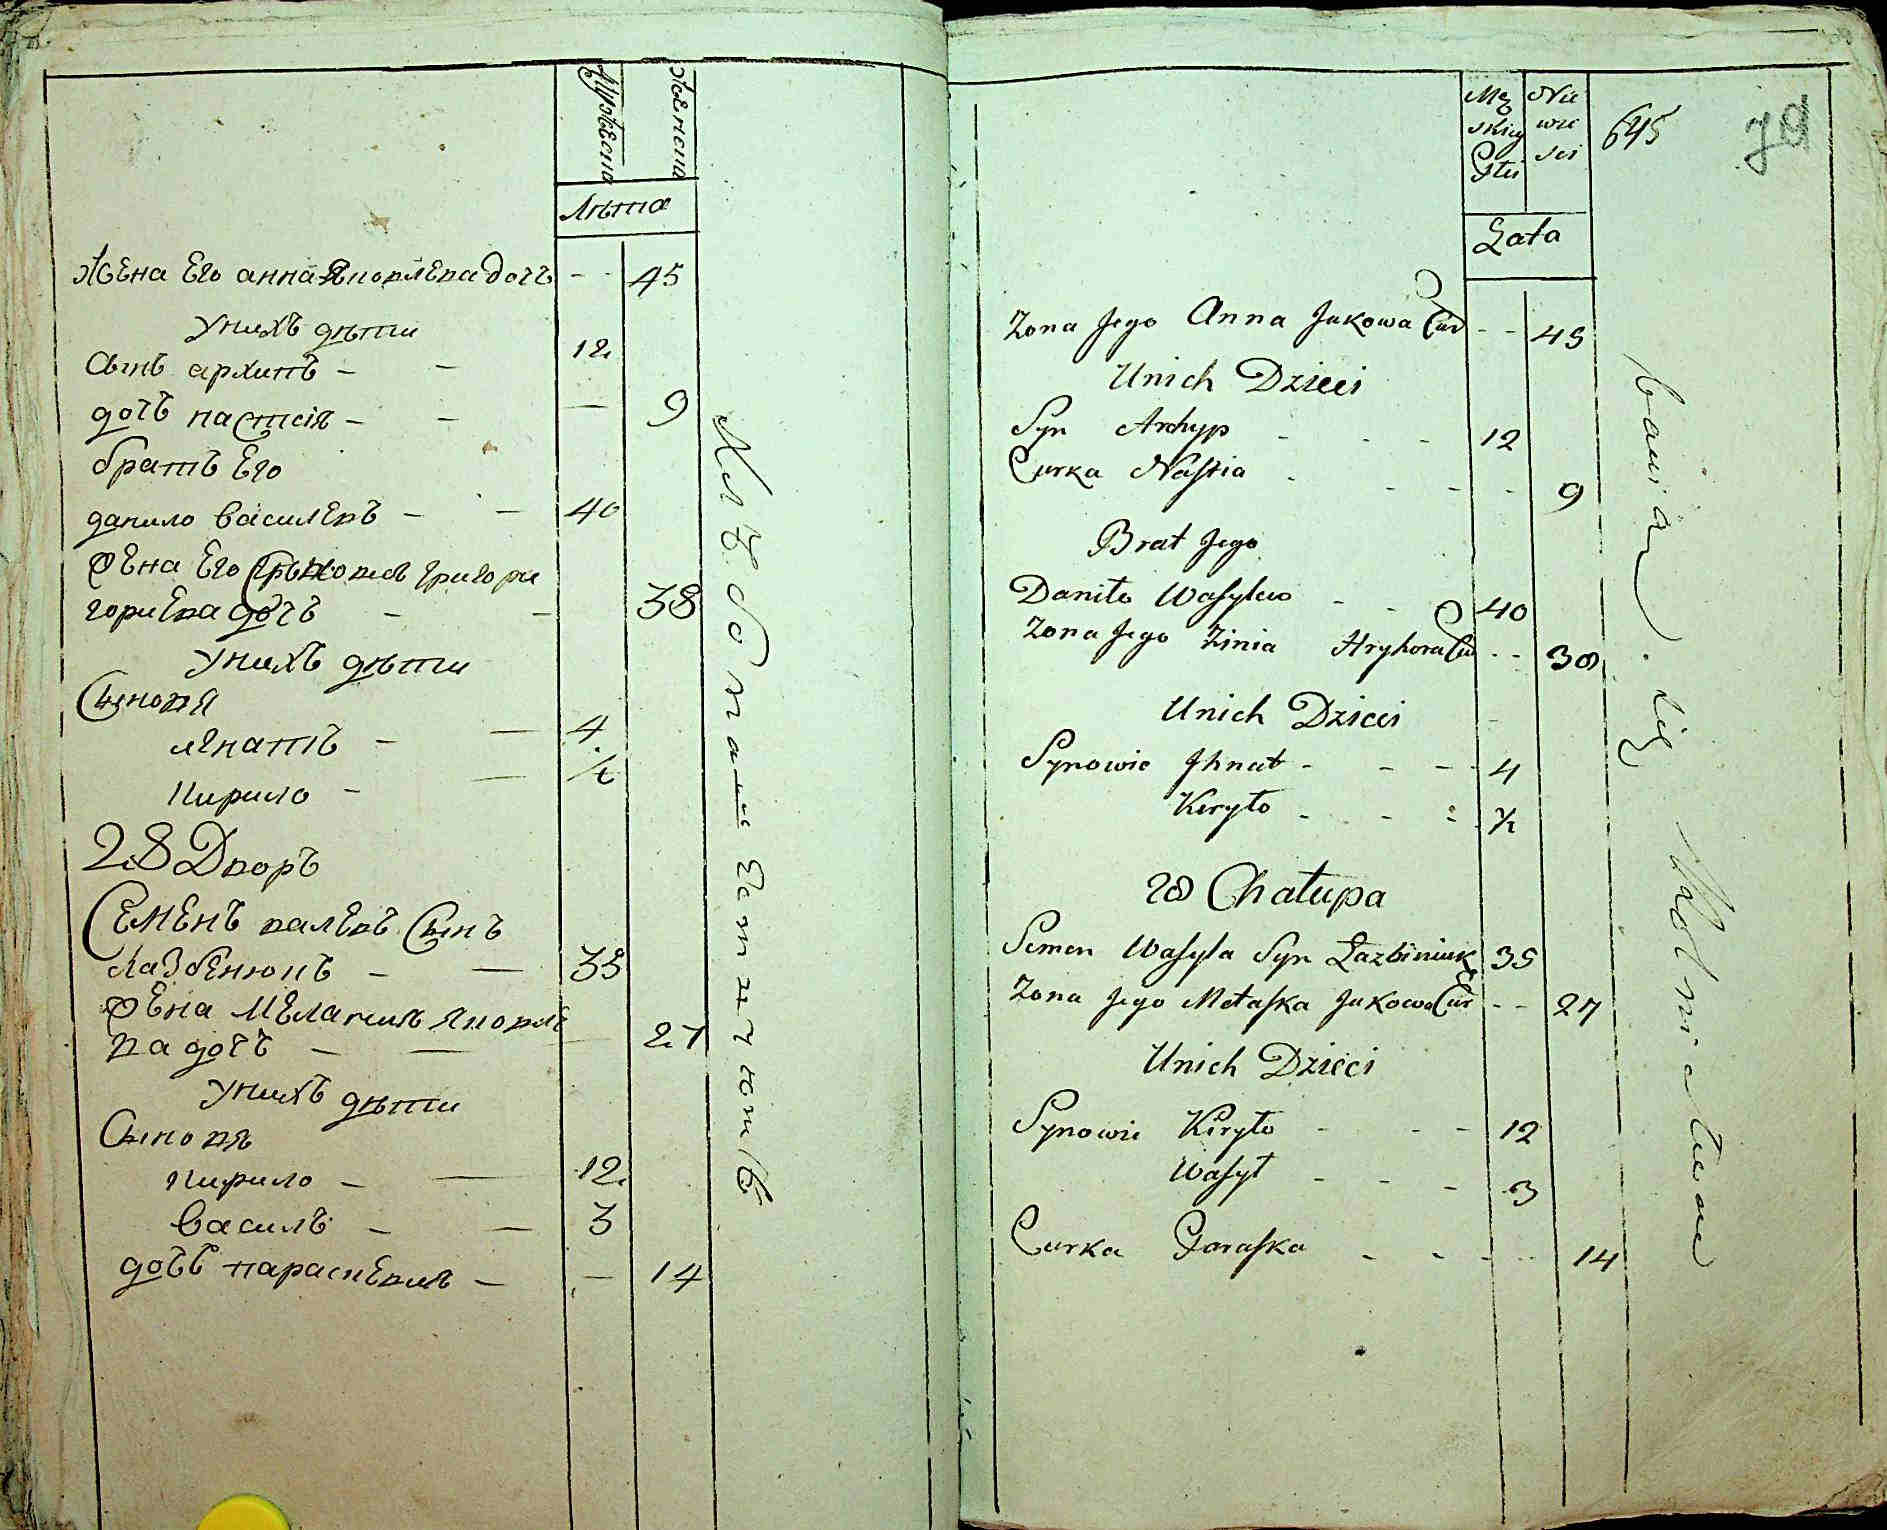 Мужеска
Женска
Лѣта
Жена Его анна Яковлева дочь - - 45
Унихъ дѣти
Сынъ архипъ - - 12
дочь настсія - - — 9
братъ Его
данило василевъ - — 40
Жена Его григори
гориева дочъ - — 38
Унихъ дѣти
Сыновя
игнатъ - — 4
кирило - — ½
28 Дворъ
Семенъ валевъ Сынъ
лазбенюкъ - — 35
Жена Мелания Яковле
ва дочъ — — 27
Унихъ дѣти
Сыновя
кирило - — 12
василь - — 3
дочъ парасковия — — 14
Хлебопашествуютъ
Mę Nie
skiey wie
Płci sci
645
79
Lata
Zona Jego Anna Jakowa Cur - - 45
Unich Dzieci
Syn Archyp - - - 12
Curka Nastia - - - - 9
Brat Jego
Daniło Wasylew - - 40
Zona Jego Zinia Hryhora Cur - - 38
Unich Dzieci
Synowie Jhnat - - - 4
Keryło - - - ½
28 Chałupa
Semen Wasyla Syn Łazbiniuk 35
Zona Jego Mełaska Jakowa Cur - - 27
Unich Dzieci
Synowie Kiryło - - - 12
Wasyl - - - 3
Curka Paraska - - - - 14
bawią się Rolnictwem